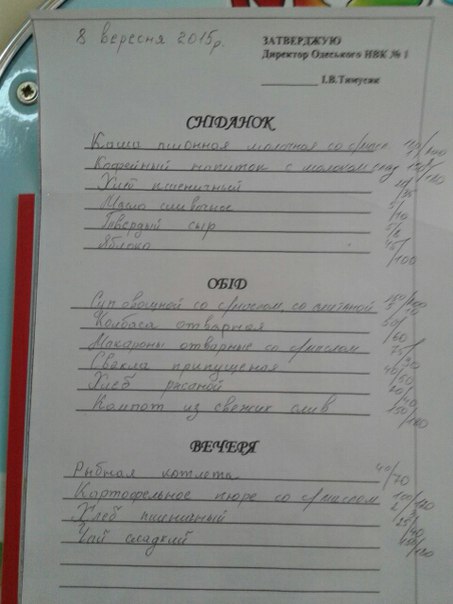 8 вересня 2015р.
ЗАТВЕРДЖУЮ
Директор Одеського НВК № 1
І.В.Тимусяк
СНІДАНОК
Каша пшонная молочная со с/маслом /200
Кофейный напиток с молоком /180
Хлеб пшеничный
Масло сливочное 5/10
Твердый сыр 5/8
Яблоко /100
ОБІД
Суп овощной со с/маслом, со сметаной
Колбаса отварная 50/60
Макароны отварные со с/маслом
Свекла припущеная 40/60
Хлеб ржаной
Компот из свежих слив 150/180
ВЕЧЕРЯ
Рыбная котлета 40/70
Картофельное пюре со с/маслом 100/120
Хлеб пшеничный
Чай сладкий /180